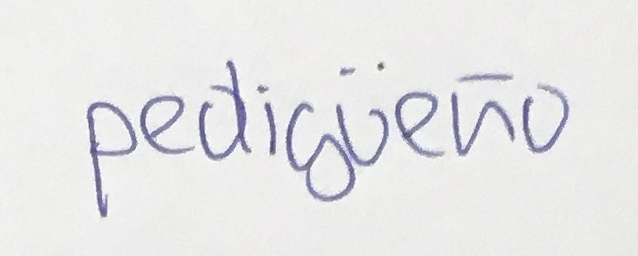 pedigüeño